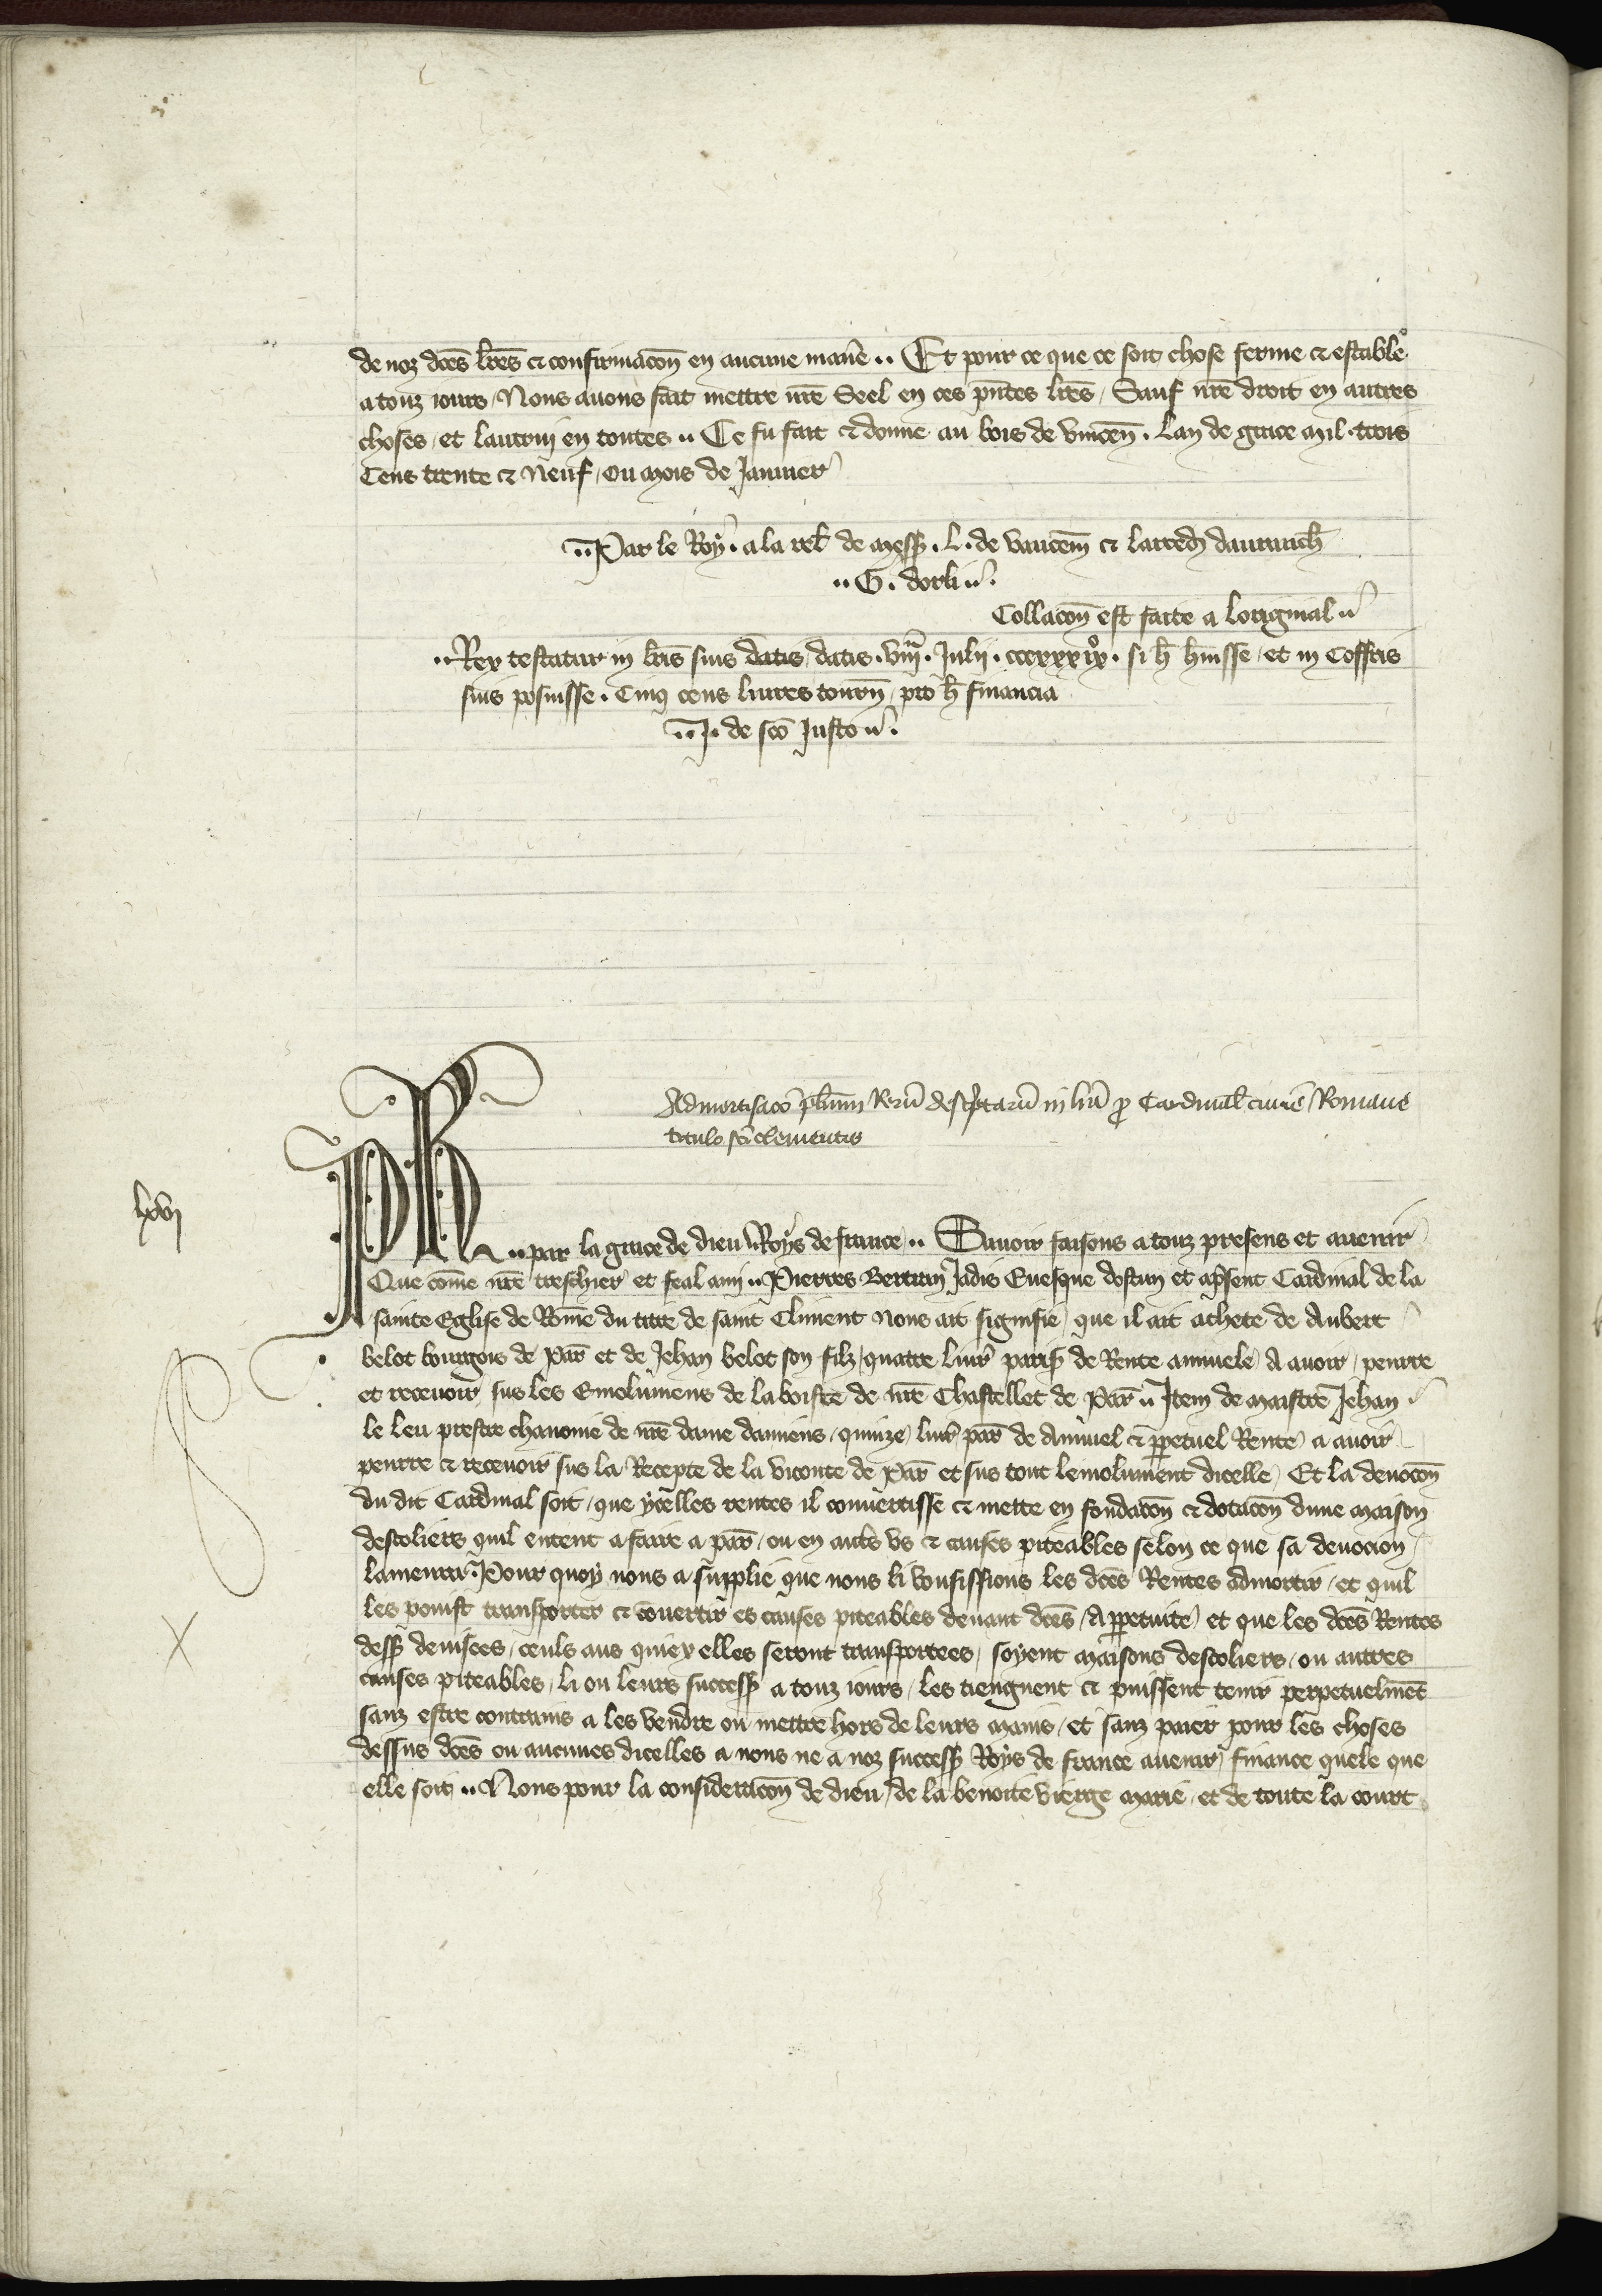 de noz dc̃es lr̃es & confirmac̃on en aucune manie͂ .. Et pour ce que ce soit chose ferme & estable
a touz iours / Nous auons fait mettre nr̃e Seel en ces pñtes lr̃es / Sauf nr̃e droit en autres
choses / et lautruy en toutes .. Ce fu fait & donne au bois de vincen̄ . Lan de grace mil . trois
Cens trente & Neuf / ou mois de Januier
.. Par le Roy . a la rel̃ de mess̃ . L . de vaucem̄ &
.. G . dorli ..
Collac̃on est faite a loriginal ..
.. Rex testatur in lr̃is suis datis datis . viij.ᵃ Julij . cccxxxixº . si h̄ h̃uisse / et in Coffris
suis posuisse . Cinq cens liures tourn̄ / pro h̄ financia
.. J . de sc̃o Justo ..
Admortisac̃o plurium Reru͂ descriptaru͂ in lr̃a pro Cardinal̃ curie͂ Romane
titulo sc̃i clementis
lxvj
PH .. par la grace de dieu Roys de france .. Sauoir faisons a touz presens et auenir
Que com̃e nr̃e treschier et feal ami .. Pierres Bertran Jadis Euesque dostun et ap̃sent Cardinal de la
sainte Eglise de Rom̃e du titre de saint Climent nous ait signifie / que il ait achete de Aubert
belot bourgois de Par̄ et de Jehan belot son filz / quatre liur̃ paris̃ de Rente annuele / A auoir / penrre
et receuoir / sus les Emolumens de la boiste de nr̃e Chastellet de Par̄ .. Item de maistre Jehan
le leu prestre chanoine de nr̃e dame damiens / quinze liur̃ par̄ de Annuel & p̱petuel Rente / a auoir
penrre & receuoir sus la Recepte de la viconte de Par̄ et sus tout lemolument dicelle / Et la deuoc̃on
du dit Cardinal soit / que ycelles rentes il conuertisse & mette en fondac̃on & dotac̃on dune maison
descoliers quil entent a faire a par̄ / ou en autr̃s vs & causes piteables selon ce que sa deuocion
lamenrra . Pour quoy nous a supplie que nous li vousissions les dc̃es Rentes admortir / et quil
les pouist transporter & co͂uertir es causes piteables deuant dc̃es / A p̱petuite / et que les dc̃es Rentes
dess̃ deuisees / ceuls aus quiex elles seront transportees / soyent maisons descoliers / ou autres
causes piteables / li ou leurs success̃ a touz iours / les tiengnent & puissent tenir perpetuelme͂t
sanz estre contrains a les vendre ou mettre hors de leurs mains / et sanz paier pour les choses
dessus dc̃es ou aucunes dicelles a nous ne a noz success̃ Roys de france auenir / finance quele que
elle soit .. Nous pour la considerac̃on de dieu / de la benoite vierge marie / et de toute la court